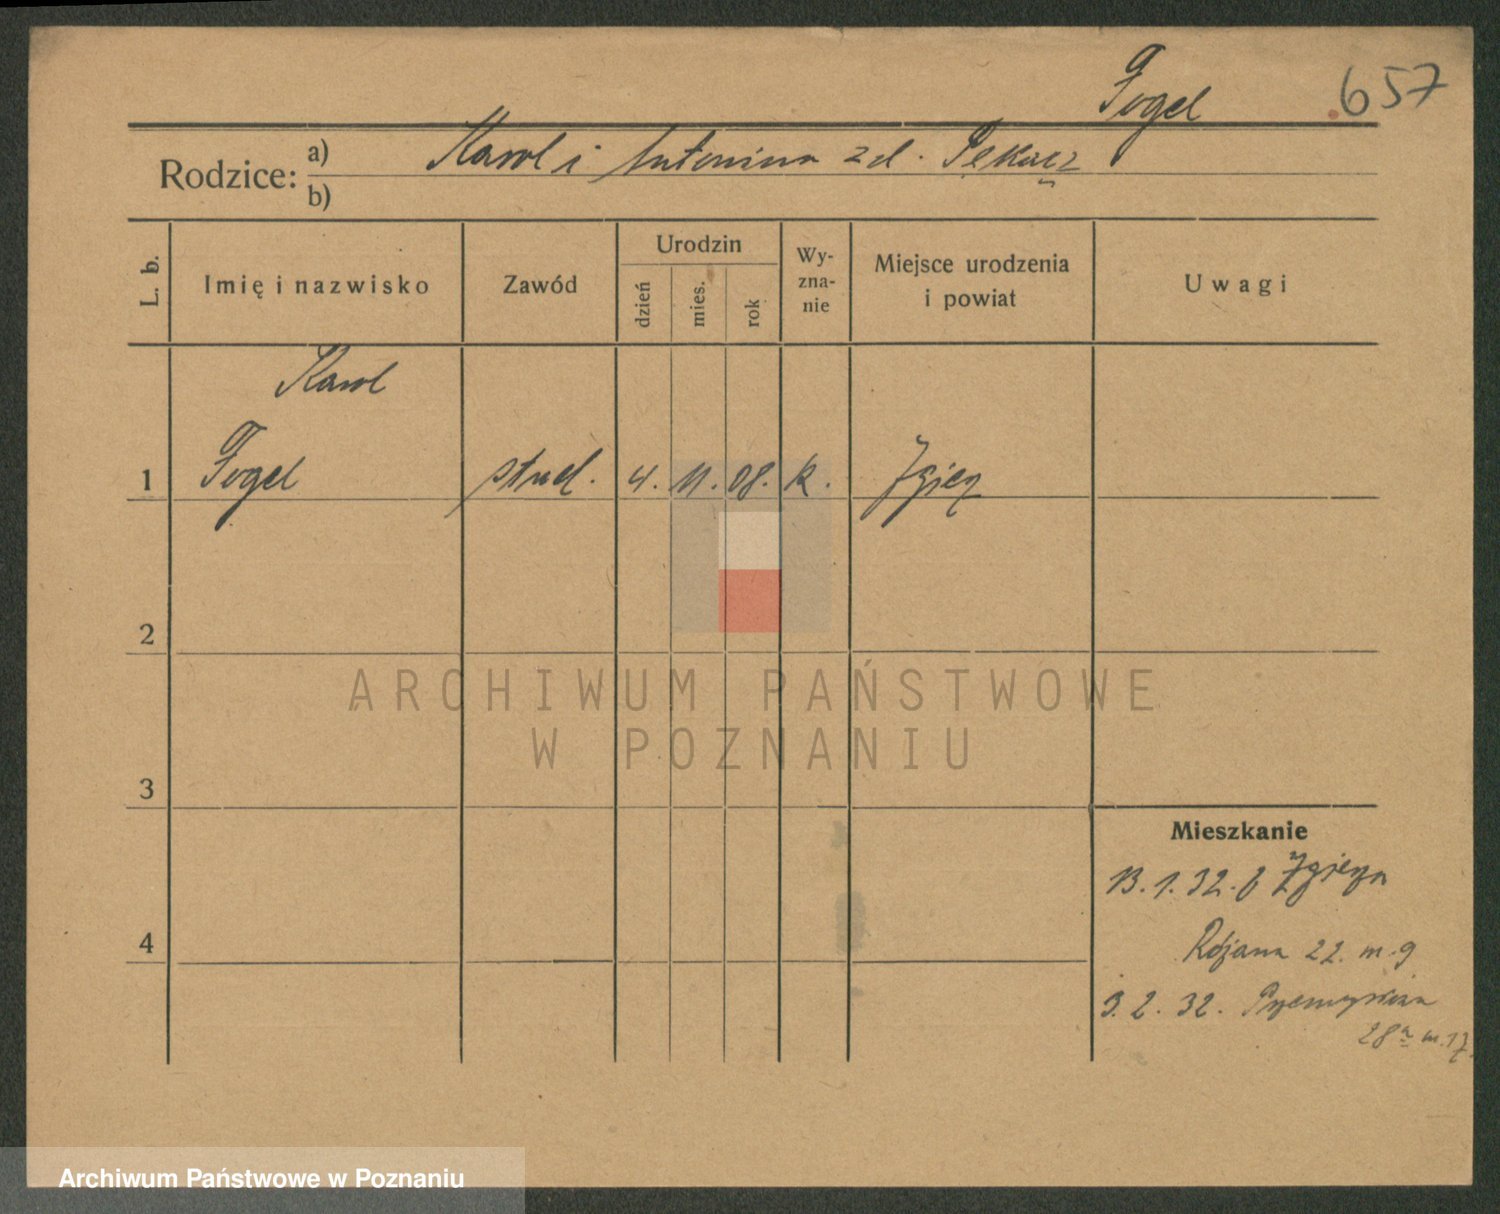 Fogel 657
Rodzice: a) Karol i Antonina zd. Pękacz
b)
L. b.
Imię i nazwisko
Zawód
Urodzin
dzień
mies.
rok
Wy-
zna-
nie
Miejsce urodzenia
i powiat
Uwagi
Karol
1 Fogel stud. 4. 11. 08. k. Zgierz
2
3
4
Mieszkanie
13. 1. 32. z Zgierza
22. m. 9
3. 2. 32.
28a m. 17.
ARCHIWUM PAŃSTWOWE
W POZNANIU
Archiwum Państwowe w Poznaniu